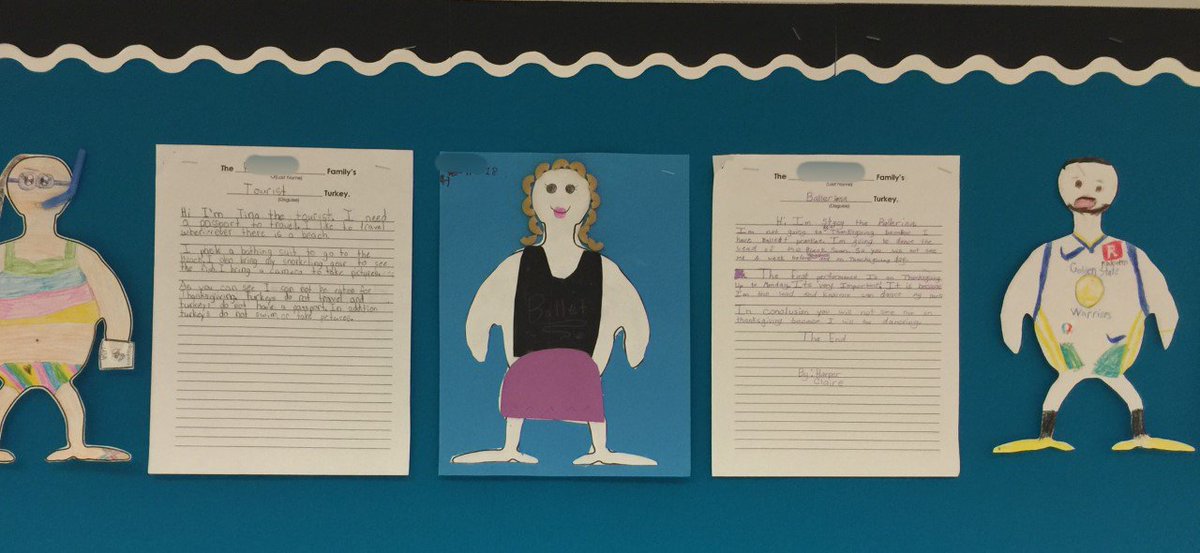 The Family's
(Last Name)
Tourist Turkey.
(Disguise)
Hi I'm Tina the tourist. I need
a passport to travel. I like to travel
whenever there is a beach.
I pack a bathing suit to go to the
beach. I also bring my snorkling gear to see
the fish. I bring a camera to take pictures.
As you can see I can not be eaten for
Thanksgiving turkeys do not travel and
turkeys do not have a passport. In addition
turkeys do not swim or take pictures.
18
Ballet
The Family's
(Last Name)
Ballerina Turkey.
(Disguise)
Hi I'm the Ballerina.
I'm not going to Thanksgiving because I
have Ballet practice. I'm going to dance the
lead of the Swan. So you will not see
me a week before or on Thanksgiving day.
The first performance is on Thanksgiving
up to Monday. It's very important. It is because
I'm the lead and can dance my part
In conclusion you will not see me on
thanksgiving because I will be dancing.
The End
By: Harper
Claire
R
Rakuten
Golden State
Warriors